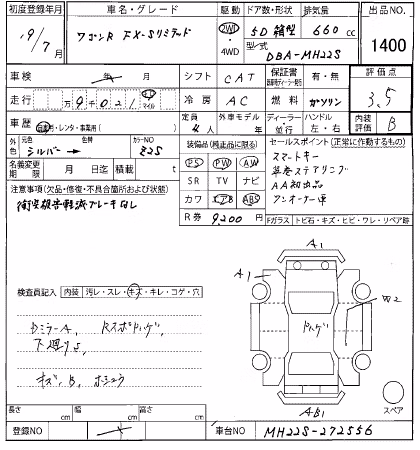 初度登録年月 車名・グレード 駆動 ドア数・形状 排気量 出品NO.
19/7 ワゴンR FX-Sリミテッド 2WD ・ 4WD 5D 箱型 660 cc 1400
型/式 DBA-MH22S
車検 年 月 シフト CAT 保証書 有・無 評価点
走行 万 9千021 km マイル 冷房 AC 燃料 ガソリン 3.5
車歴 自家用・レンタ・事業用( ) 定員 4人 外車モデル 年 ディーラー・並行 ハンドル 左・右 内装評価 B
外色 元色 シルバー 色替 カラーNO Z2S
装備品(純正品に限る) セールスポイント(正常に作動するもの)
PS PW AW
スマートキー
名義変更期限 月 日迄 積載量 t
SR TV ナビ
革巻ステアリング
AA初出品
注意事項(欠品・修復・不具合箇所および状態)
カワ エアB ABS
ワンオーナー車
衝突被害軽減ブレーキなし
R券 9,200 円
Fガラス トビ石・キズ・ヒビ・ワレ・リペア跡
A1
A1
検査員記入 内装 汚レ・スレ・キズ・キレ・コゲ・穴
W2
DミラーA、
下廻りS、
キズ、B、
AB1
スペア
長さ cm 幅 cm 高さ cm
登録NO 車台NO MH22S-272556